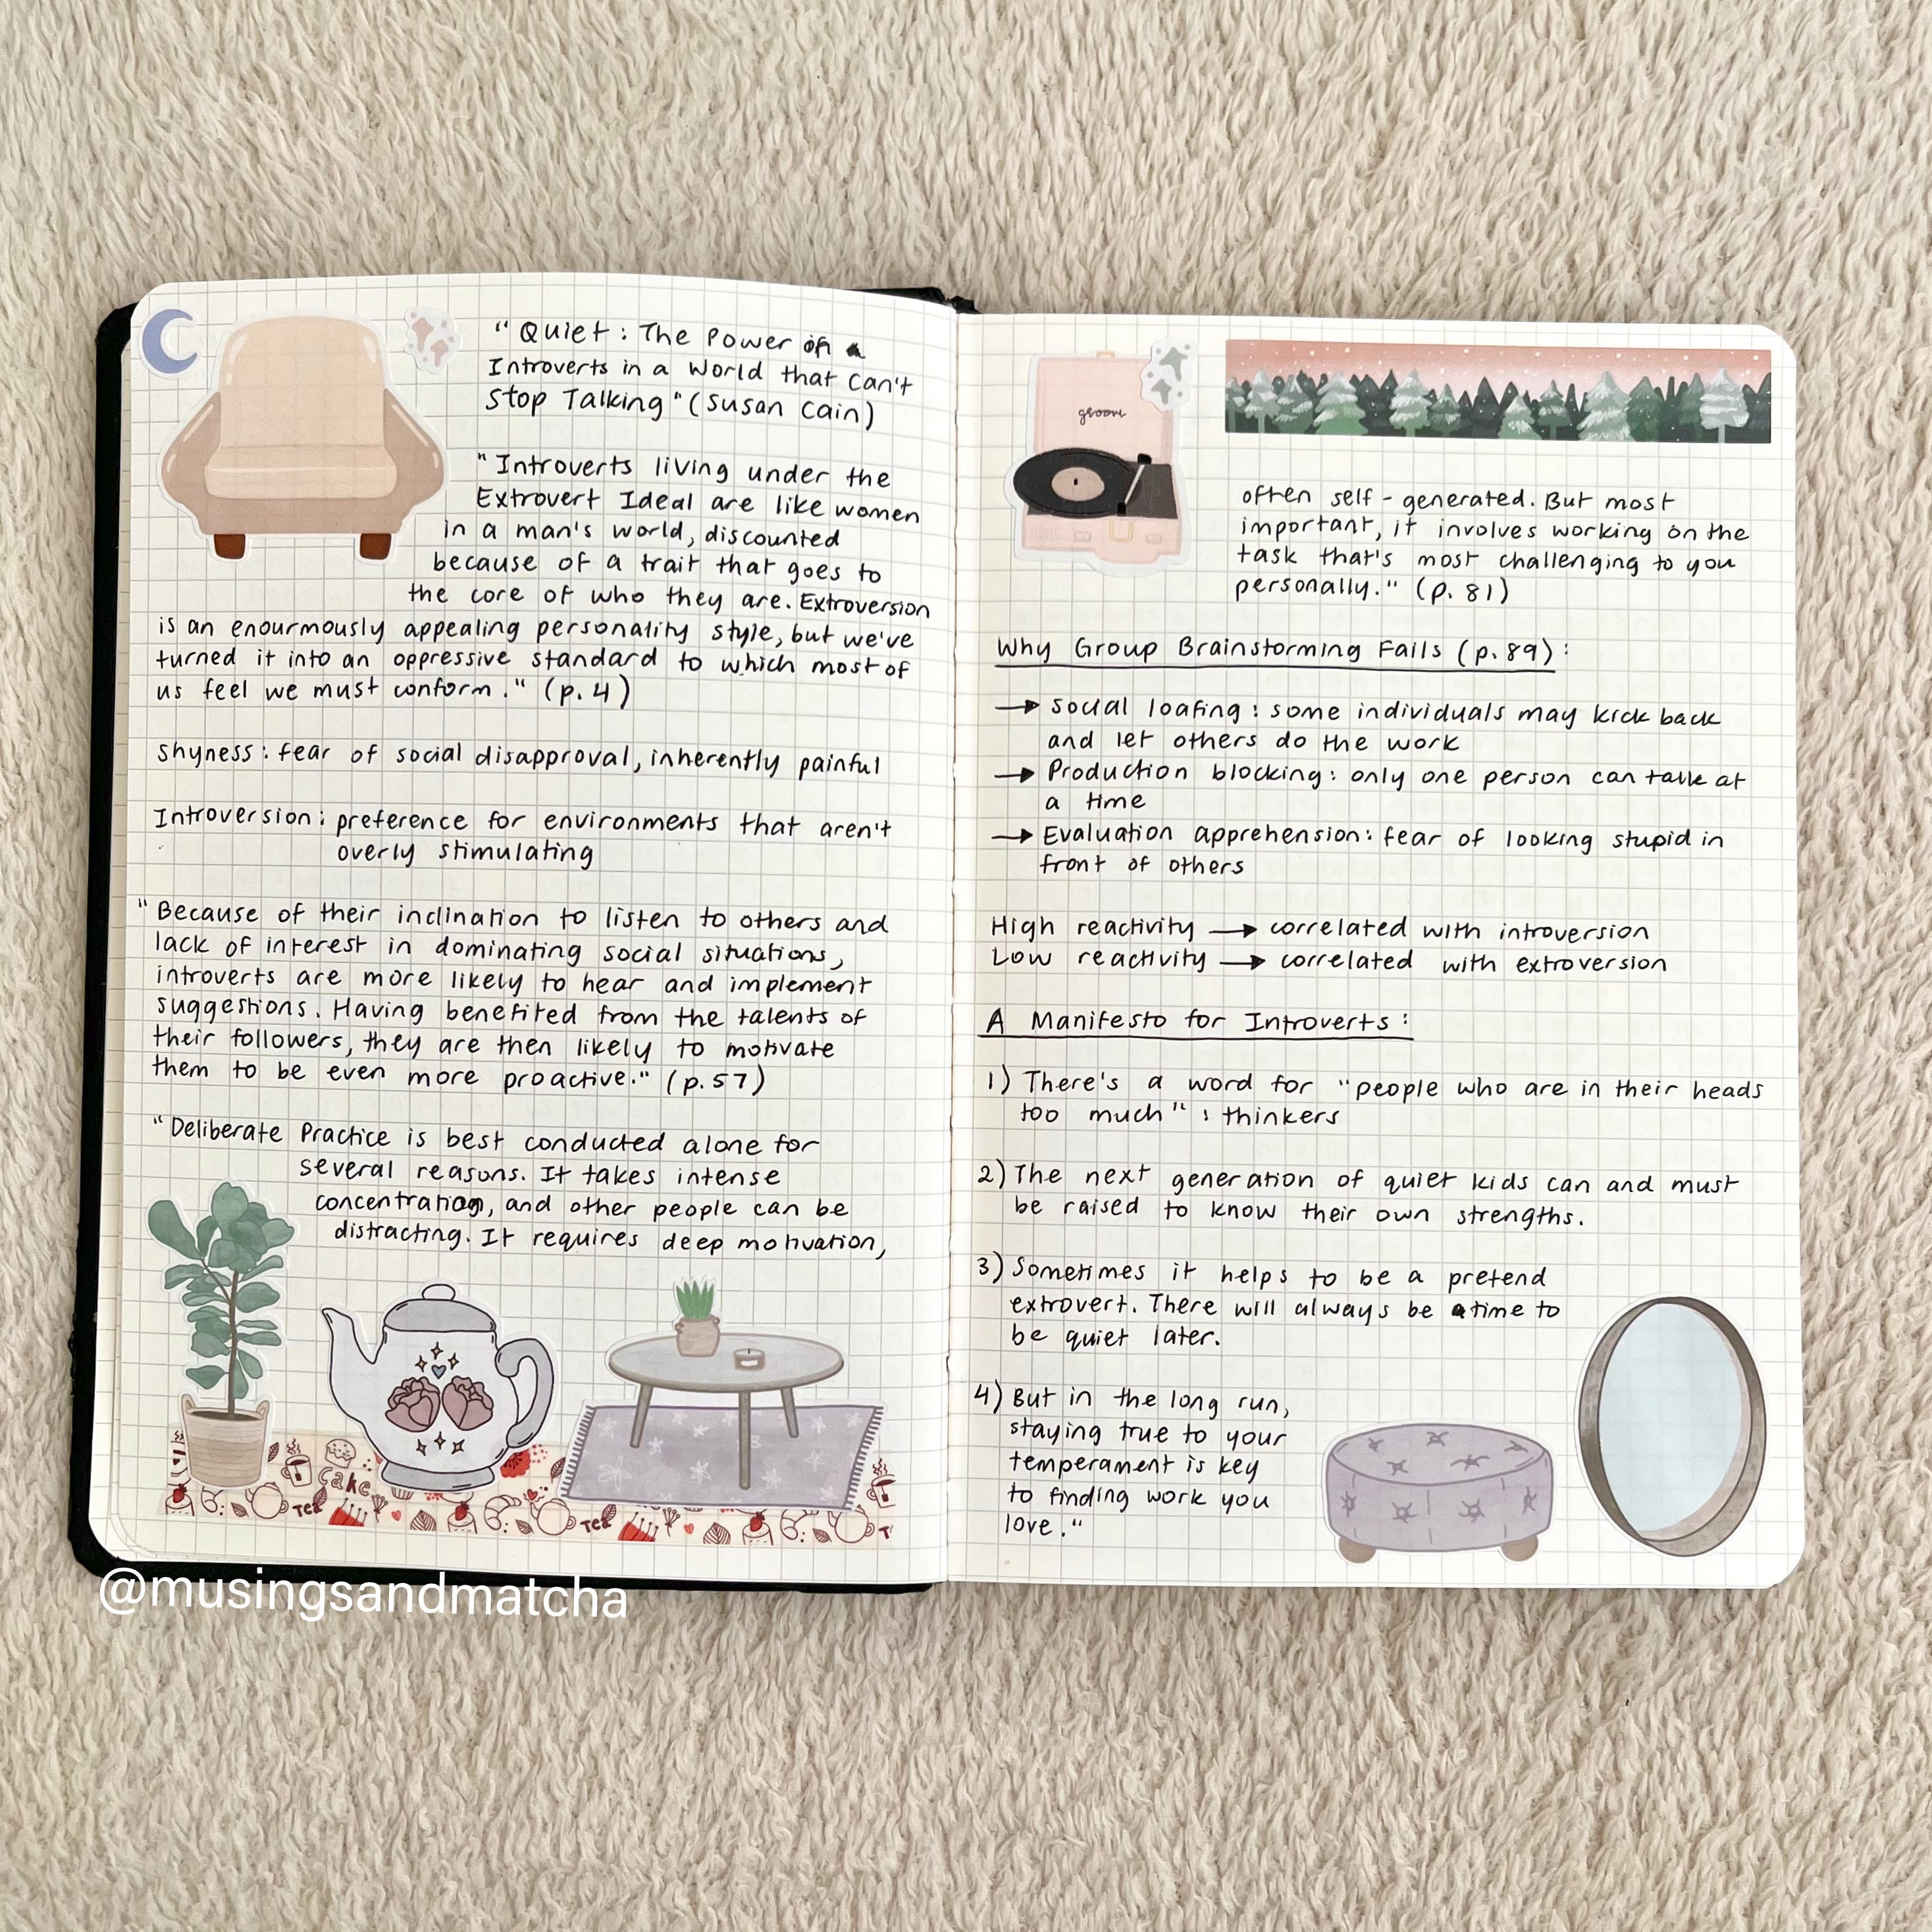 "Quiet: The Power of
Introverts in a World that Can't
Stop Talking" (Susan Cain)
"Introverts living under the
Extrovert Ideal are like women
in a man's world, discounted
because of a trait that goes to
the core of who they are. Extroversion
is an enourmously appealing personality style, but we've
turned it into an oppressive standard to which most of
us feel we must conform." (p. 4)
Shyness: fear of social disapproval, inherently painful
Introversion: preference for environments that aren't
overly stimulating
"Because of their inclination to listen to others and
lack of interest in dominating social situations,
introverts are more likely to hear and implement
suggestions. Having benefited from the talents of
their followers, they are then likely to motivate
them to be even more proactive." (p. 57)
"Deliberate Practice is best conducted alone for
several reasons. It takes intense
concentration, and other people can be
distracting. It requires deep motivation,
cake
Tea
Tea
T
groove
often self-generated. But most
important, it involves working on the
task that's most challenging to you
personally." (p. 81)
Why Group Brainstorming Fails (p. 89):
→ social loafing: some individuals may kick back
and let others do the work
→ Production blocking: only one person can talk at
a time
→ Evaluation apprehension: fear of looking stupid in
front of others
High reactivity → correlated with introversion
Low reactivity → correlated with extroversion
A Manifesto for Introverts:
1) There's a word for "people who are in their heads
too much": thinkers
2) The next generation of quiet kids can and must
be raised to know their own strengths.
3) Sometimes it helps to be a pretend
extrovert. There will always be a time to
be quiet later.
4) But in the long run,
staying true to your
temperament is key
to finding work you
love."
@musingsandmatcha